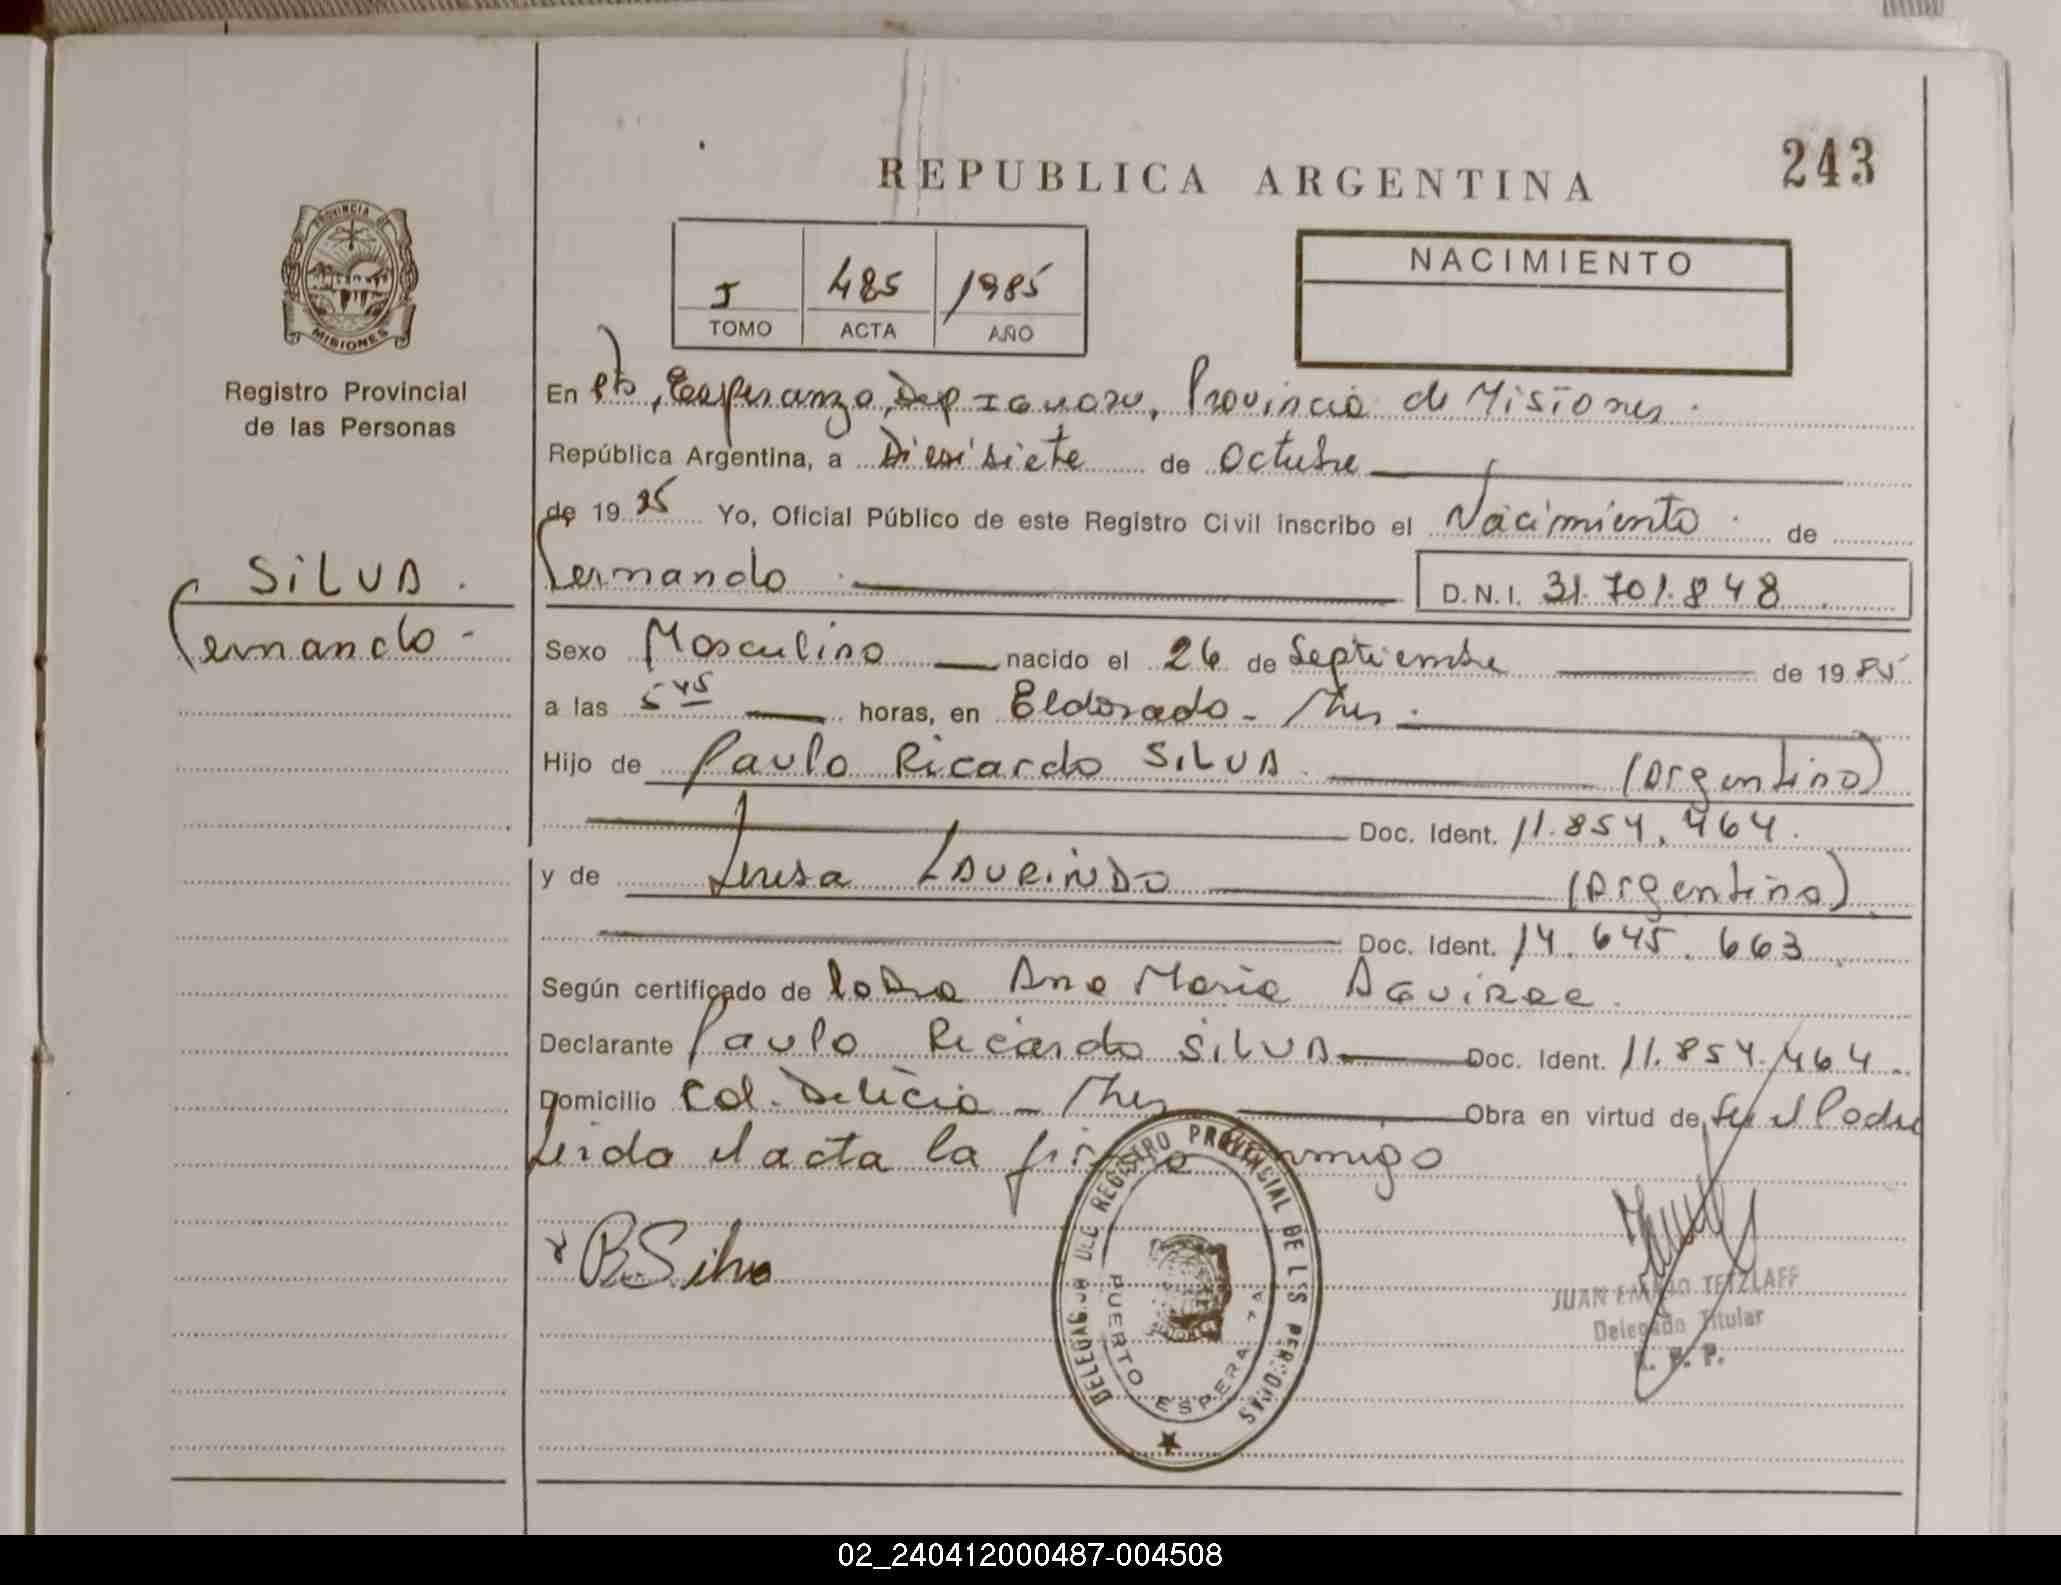 243
REPUBLICA ARGENTINA
PROVINCIA DE
MISIONES
Registro Provincial
de las Personas
I 485 1985
TOMO ACTA AÑO
NACIMIENTO
En Pto, Esperanza, Dep Iguazu, Provincia de Misiones.
República Argentina, a Diesisiete de Octubre
de 19 85 Yo, Oficial Público de este Registro Civil inscribo el Nacimiento de
SILVA.
Fernando -
Fernando
D.N.I. 31.701.848
Sexo Masculino nacido el 26 de Septiembre de 19 85
a las 5 45 horas, en Eldorado - Mnes.
Hijo de Paulo Ricardo SILVA (Argentino)
Doc. Ident. 11.854.464.
y de Teresa LAURINDO (Argentina)
Doc. Ident. 14.645.663
Según certificado de Ana Maria AGUIRRE.
Declarante Paulo Ricardo SILVA Doc. Ident. 11.854.464
Domicilio Col. Delicia - Mnes Obra en virtud de Ser el Padre
Leida el acta la firma conmigo
x Silva
REGISTRO PROVINCIAL DE LAS PERSONAS
PUERTO ESPERANZA
JUAN EMILIO TETZLAFF
Delegado Titular
R. P. P.
02_240412000487-004508